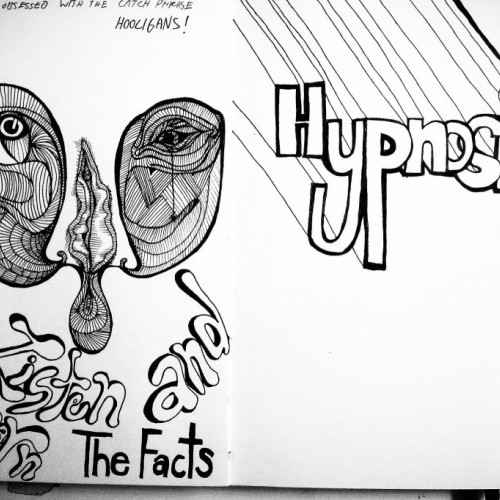 OBSESSED WITH THE CATCH PHRASE
HOOLIGANS!
Listen and
The Facts
Hypnos